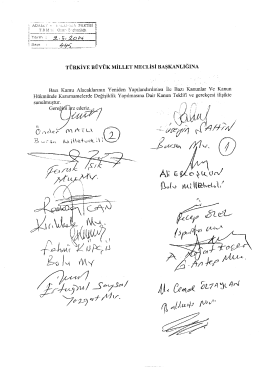 2.5.2014
445
TÜRKİYE BÜYÜK MİLLET MECLİSİ BAŞKANLIĞINA
Bazı Kamu Alacaklarının Yeniden Yapılandırılması ile Bazı Kanunlar Ve Kanun
Hükmünde Kararnamelerde Değişiklik Yapılmasına Dair Kanun Teklifi ve gerekçesi ilişikte
sunulmuştur.
Gereğini arz ederiz
Önder MATLI
2
ŞAHİN
Bursa Mv.
1
Faruk Işık
Muş Mv
Bolu Milletvekili
Ramazan CAN
Kırıkkale Mv.
Recep Özel
Isparta Mv
Fehmi KÜPÇÜ
Bolu Mv
G.Antep Mv.
Ertuğrul Soysal
Yozgat Mv.
Ali Cemal ÖZTAYLAN
Balıkesir Mv.